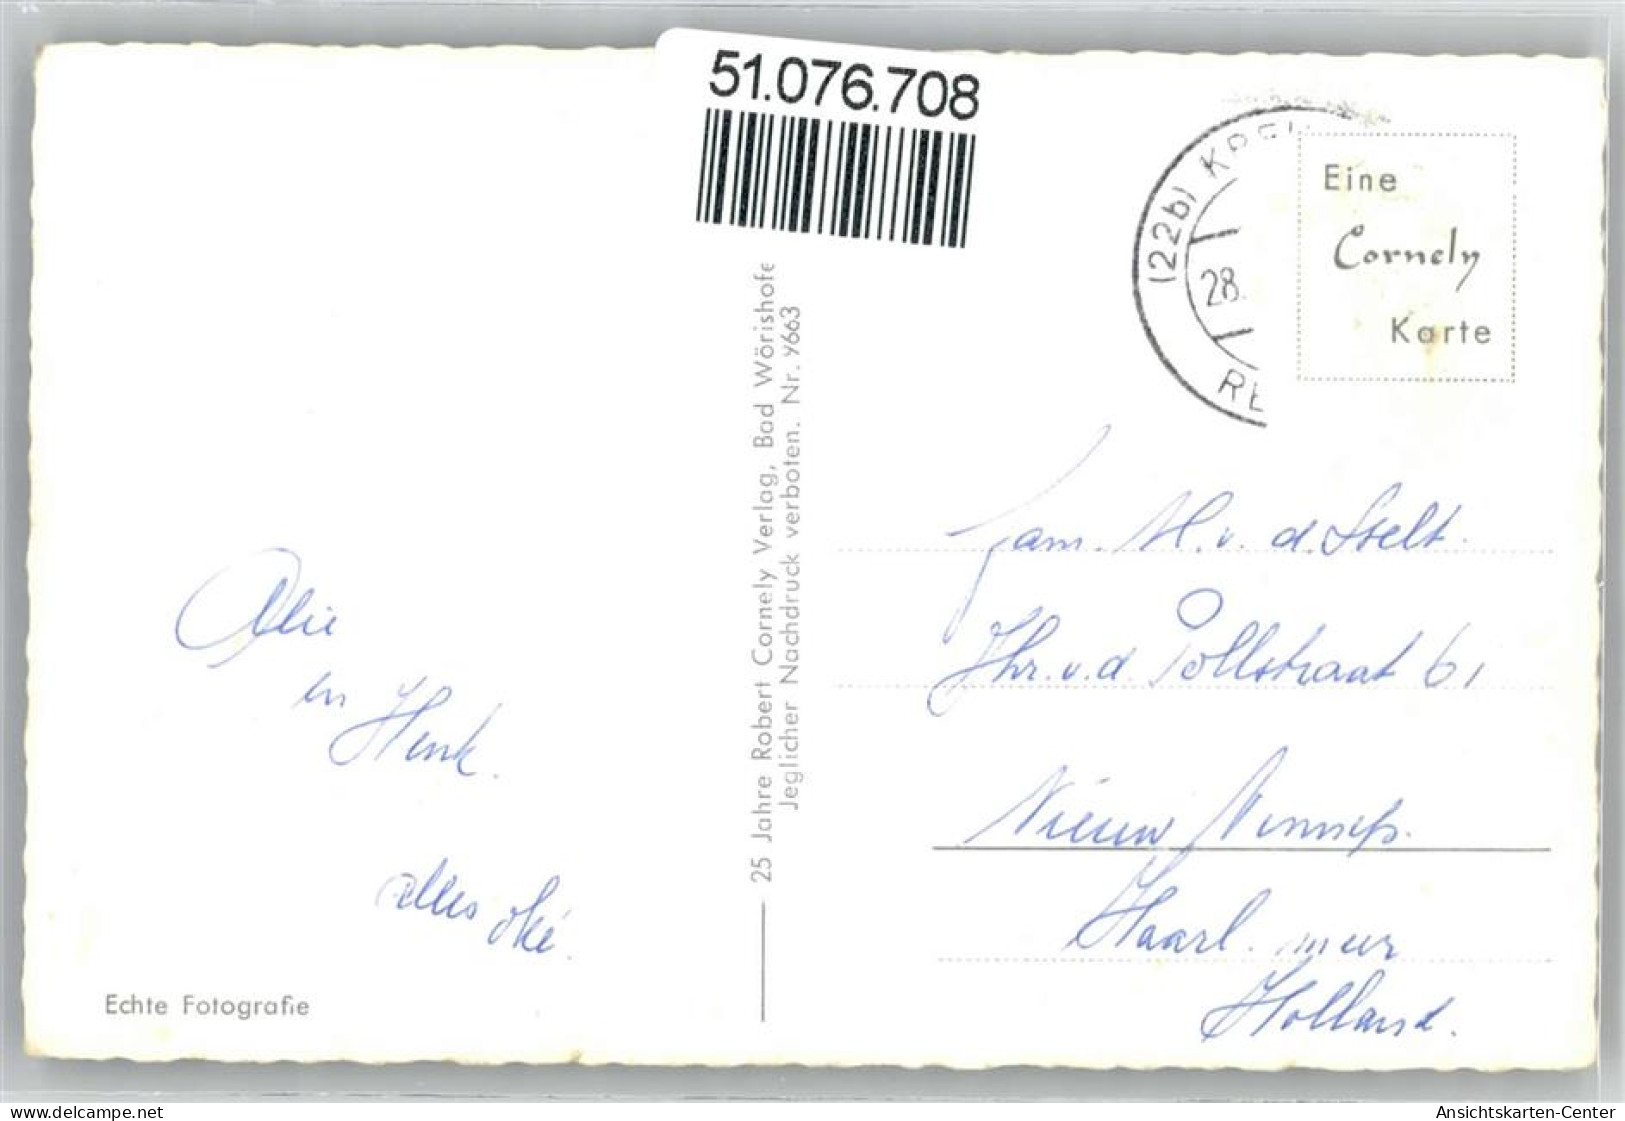 51.076.708
(22b) K
28.
Eine
Cornely
Karte
25 Jahre Robert Cornely Verlag, Bad Wörishofe
Jeglicher Nachdruck verboten. Nr. 9663
Alie
en
Henk.
alles oké.
Echte Fotografie
Fam. M. v. d. Stelt.
Jhr. v. d. Pollstraat 61
Nieuw Vennep.
Haarl. meer
Holland.
www.delcampe.net
Ansichtskarten-Center